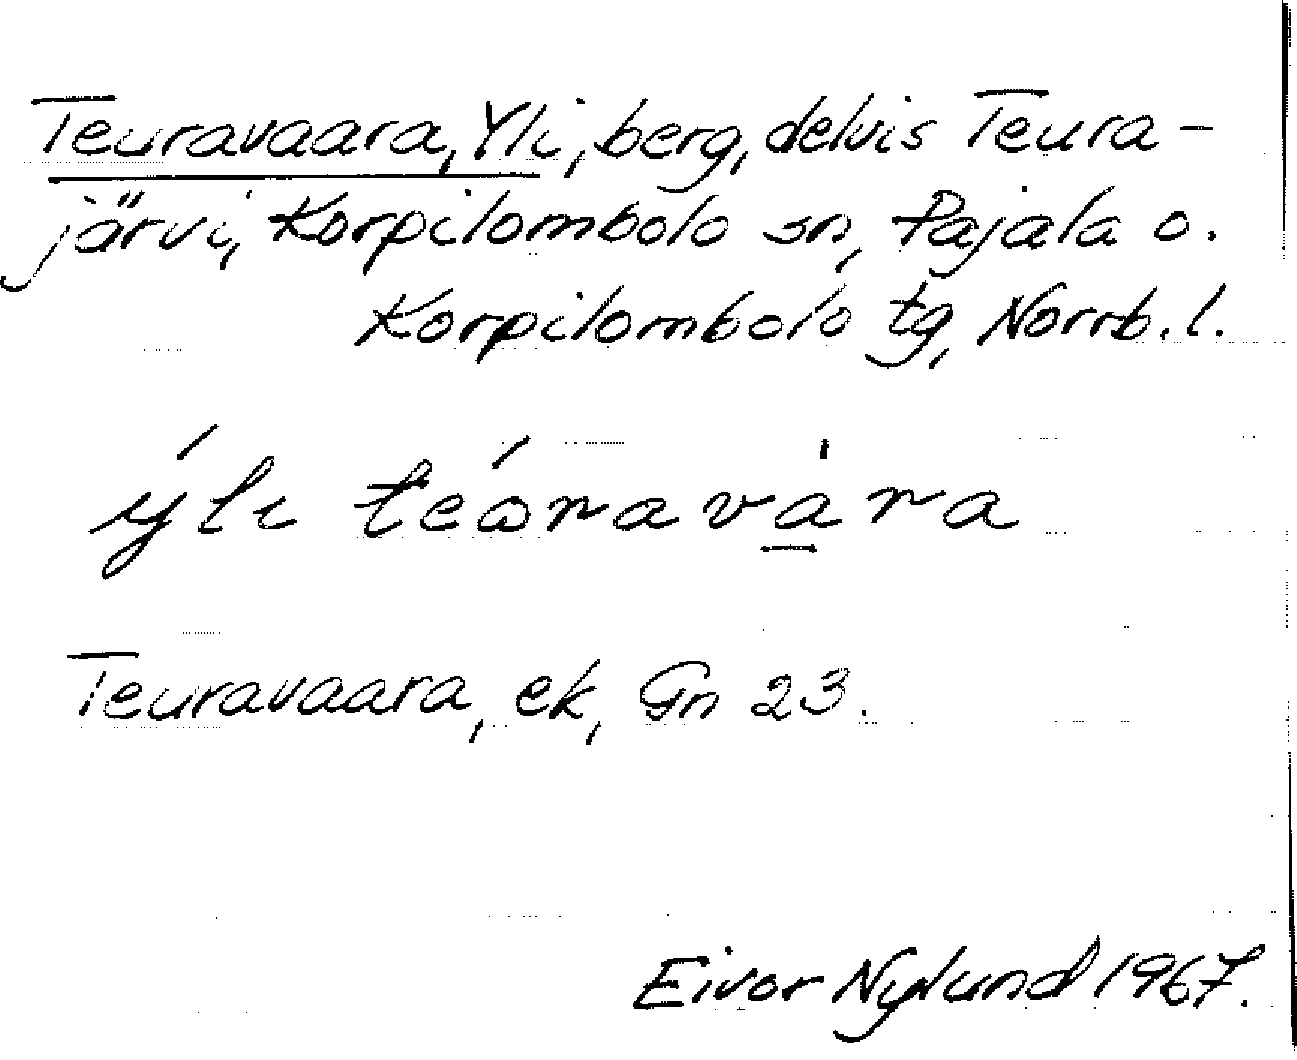 Teuravaara, Yli, berg, delvis Teura-
järvi, Korpilombolo sn, Pajala o.
Korpilombolo tg, Norrb. l.
ýli teóravàra
Teuravaara, ek, Gn 23.
Eivor Nylund 1967.